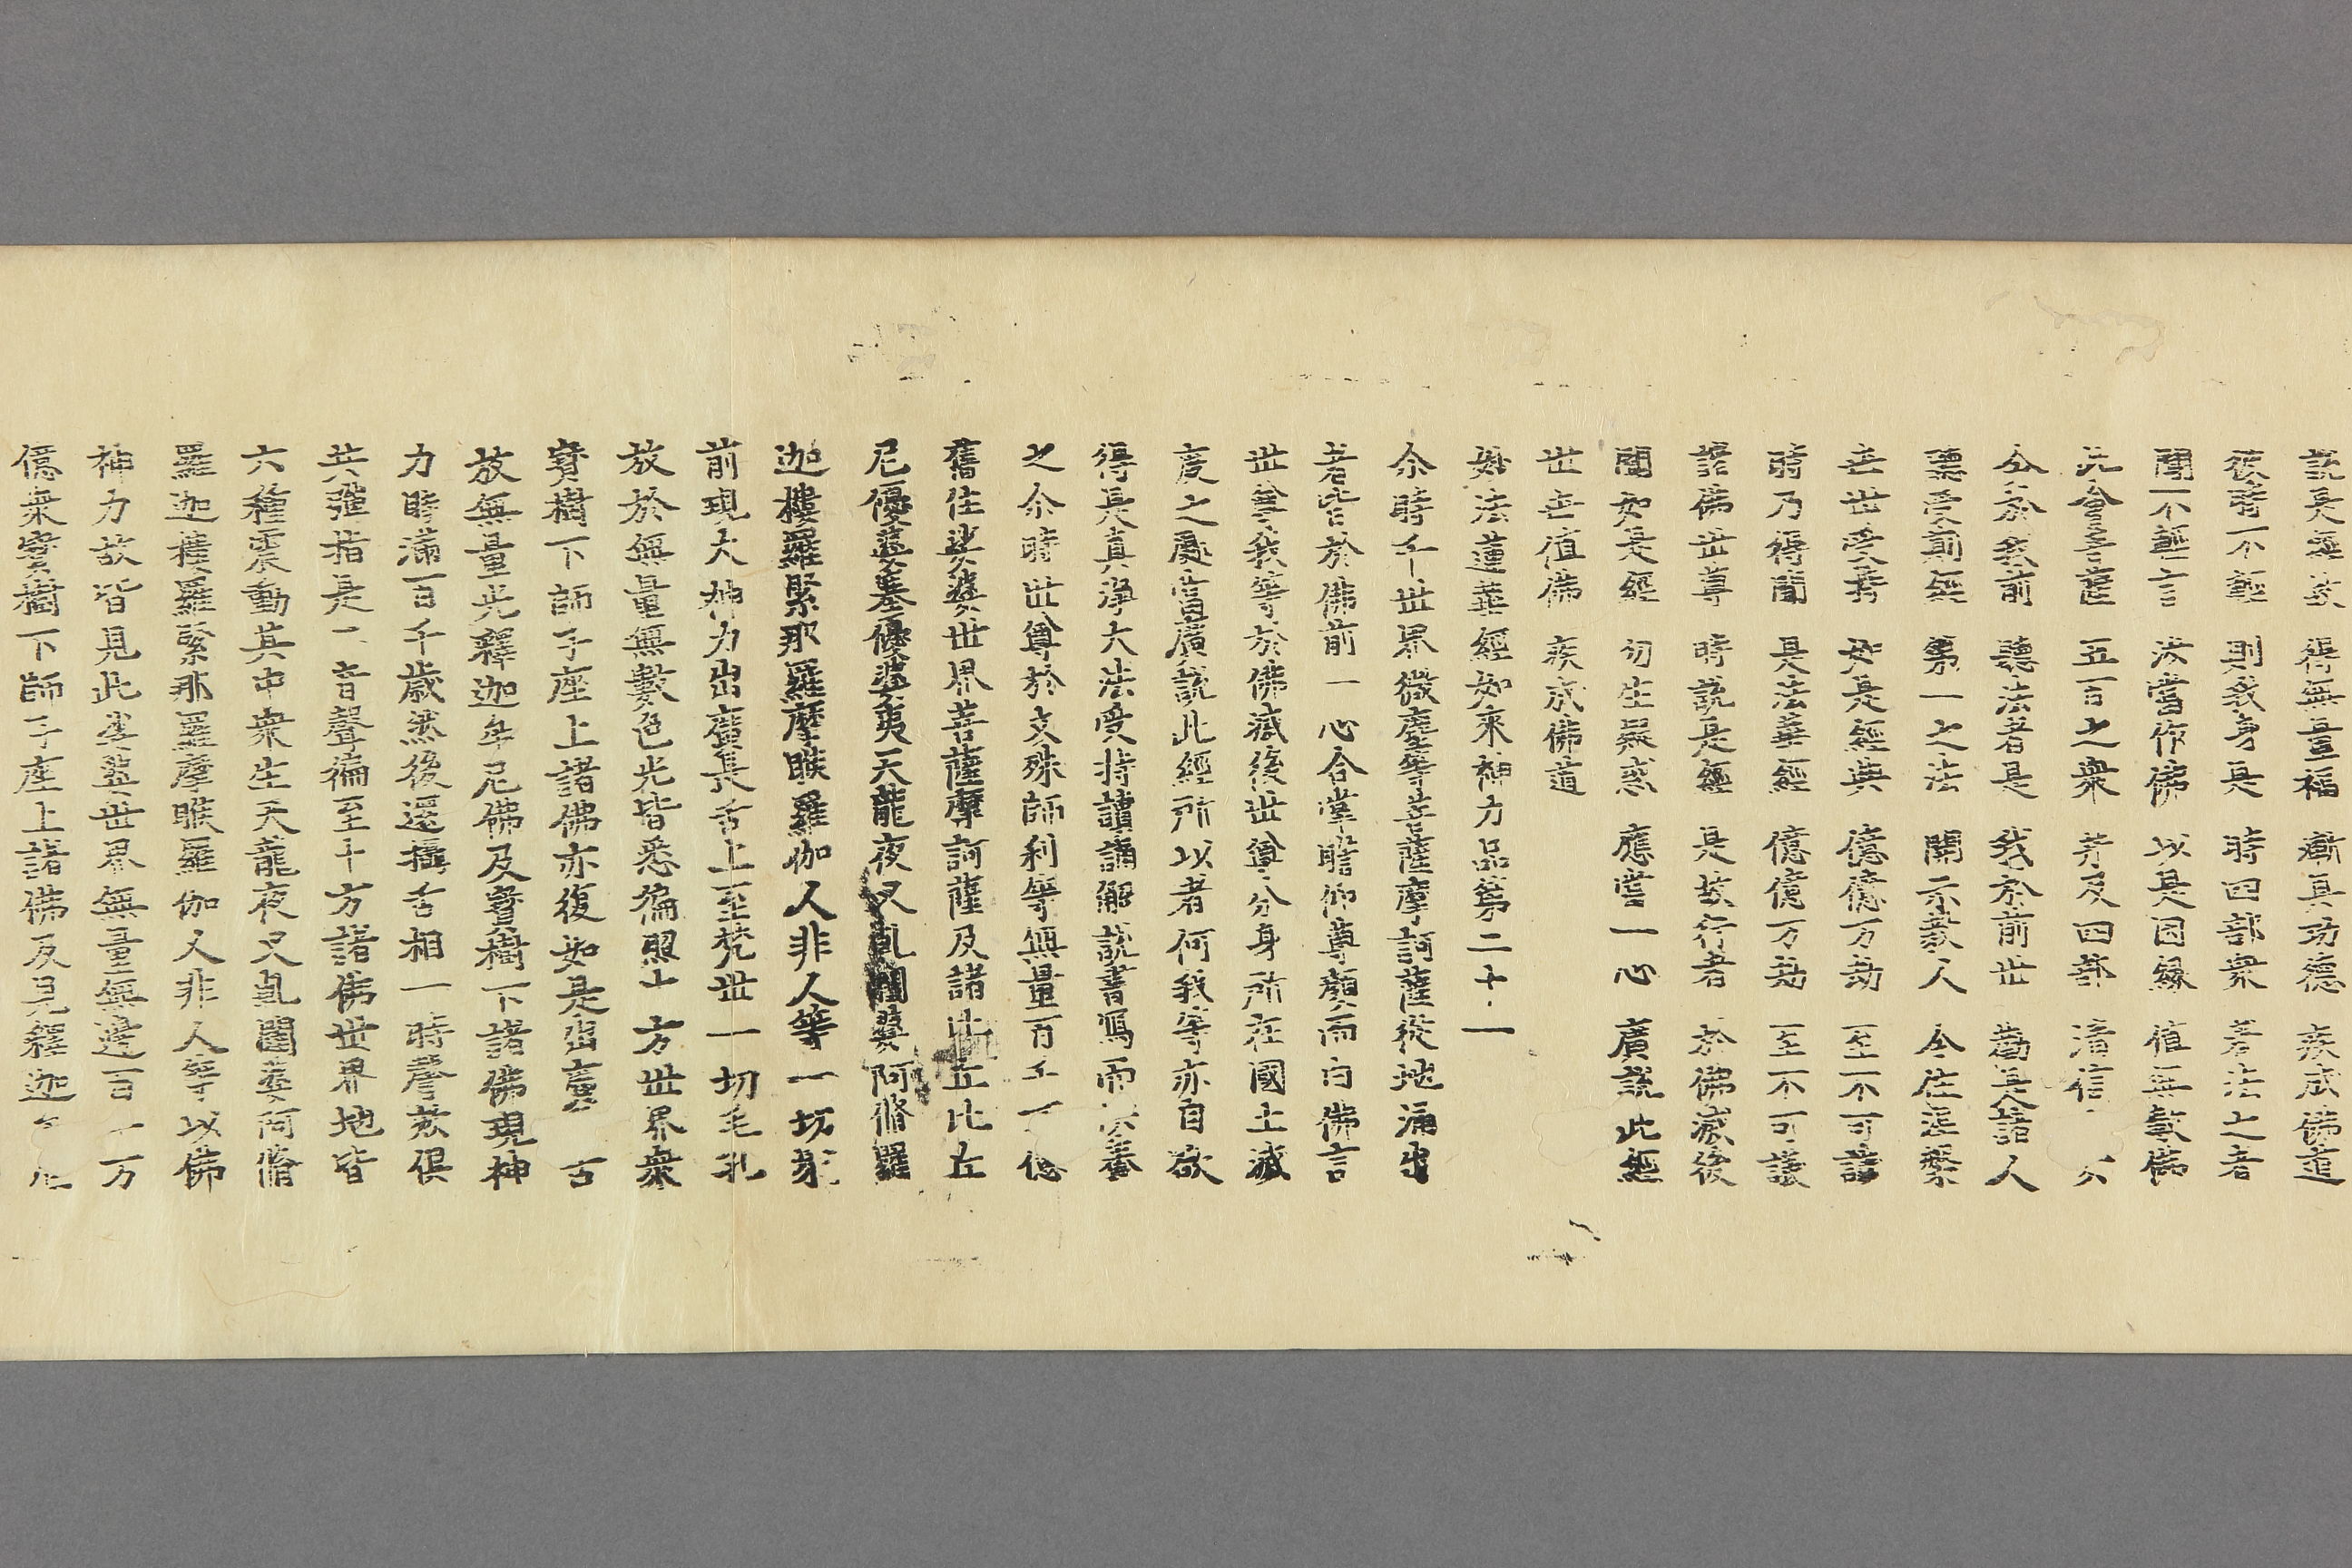 說是經故　得無量福　漸具功德　疾成佛道
彼時不輕　則我身是　時四部衆　著法之者
聞不輕言　汝當作佛　以是因緣　值無數佛
此會菩薩　五百之衆　并及四部　清信
今於我前　聽法者是　我於前世　勸是諸人
聽受斯經　第一之法　開示教人　令住涅槃
世世受持　如是經典　億億万劫　至不可議
時乃得聞　是法華經　億億万劫　至不可議
諸佛世尊　時說是經　是故行者　於佛滅後
聞如是經　勿生疑惑　應當一心　廣說此經
世世值佛　疾成佛道
妙法蓮華經如來神力品第二十一
尒時千世界微塵等菩薩摩訶薩從地涌出
者皆於佛前一心合掌瞻仰尊顏而白佛言
世尊我等於佛滅後世尊分身所在國土滅
度之處當廣說此經所以者何我等亦自欲
得是真淨大法受持讀誦解說書寫而供養
之尒時世尊於文殊師利等無量百千万億
舊住娑婆世界菩薩摩訶薩及諸比丘比丘
尼優婆塞優婆夷天龍夜叉乹闥婆阿脩羅
迦樓羅緊那羅摩睺羅伽人非人等一切衆
前現大神力出廣長舌上至梵世一切毛孔
放於無量無數色光皆悉徧照十方世界衆
寶樹下師子座上諸佛亦復如是出廣　舌
放無量光釋迦牟尼佛及寶樹下諸佛現神
力時滿百千歲然後還攝舌相一時謦欬俱
共彈指是二音聲徧至十方諸佛世界地皆
六種震動其中衆生天龍夜叉乹闥婆阿脩
羅迦樓羅緊那羅摩睺羅伽人非人等以佛
神力故皆見此娑婆世界無量無邊百千万
億衆寶樹下師子座上諸佛及見釋迦牟尼